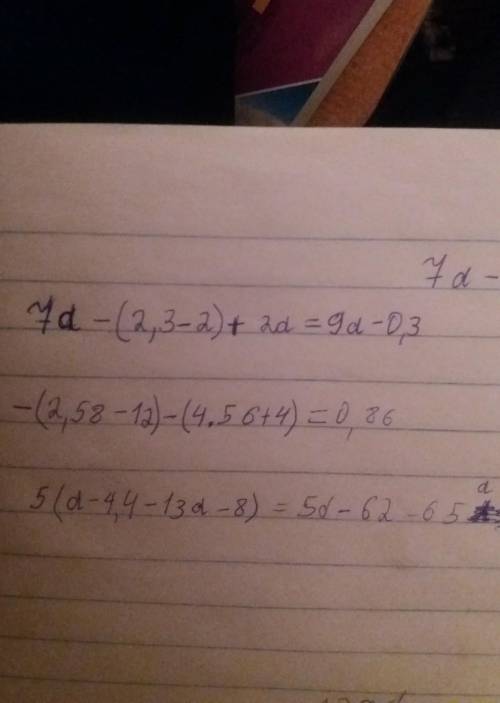 7d -
7d - (2,3-2) + 2d = 9d - 0,3
-(2,58-12)-(4.56+4) = 0,86
5(d-4,4-13d-8) = 5d-62-65d